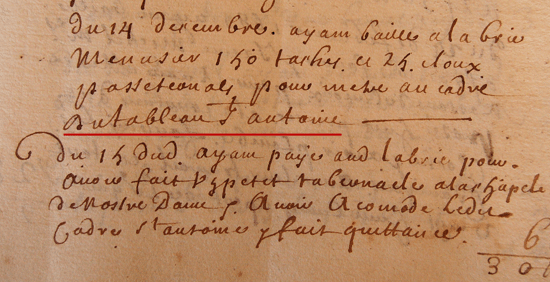 du 14 decembre. ayam baille a la brie
Menusier 150 taches et 25 cloux
passetenals pour metre au cadre
du tableau St antoine
du 15 dud. ayam paye aud labrie pour
avoir fait Un petet tabernacle a la chapele
de Nostre Dame & Avoir Acomode Ledit
Cadre St antoine y fait quittance.
6
30